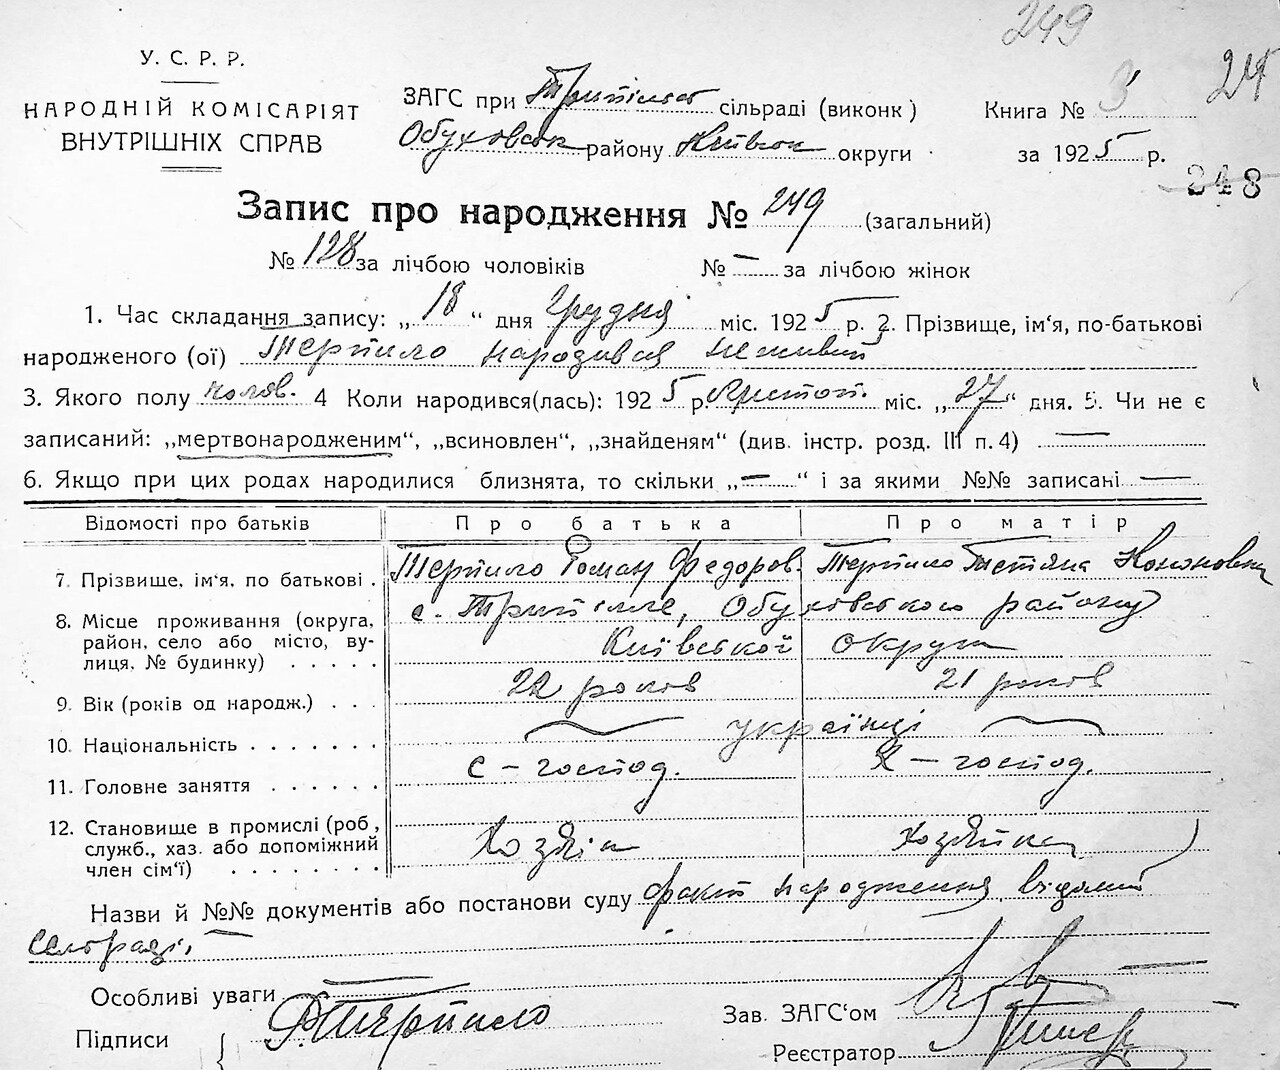 249
24
У. С. Р. Р.
НАРОДНІЙ КОМІСАРІЯТ
ВНУТРІШНІХ СПРАВ
ЗАГС при Трипільск сільраді (виконк)
Обуховськ району Київськ округи
Книга № 3
за 1925 р.
248
Запис про народження № 249 (загальний)
№ 128 за лічбою чоловіків № — за лічбою жінок
1. Час складання запису: „ 18 “ дня Грудня міс. 1925 р. 2. Прізвище, ім‘я, по-батькові
народженого (ої) Терпило народився неживий
3. Якого полу чолов. 4 Коли народився(лась): 1925 р. міс. „ 27 “ дня. 5. Чи не є
записаний: „мертвонародженим“, „всиновлен“, „знайденям“ (див. інстр. розд. III п. 4) —
6. Якщо при цих родах народилися близнята, то скільки „ — “ і за якими №№ записані —
Відомості про батьків Про батька Про матір
7. Прізвище, ім‘я, по батькові . Терпило Роман Федоров. Терпило Тетяна Кононовна
8. Місце проживання (округа, район, село або місто, вулиця, № будинку) . . . . . с. Трипілле, Обуховського району
Київської округи
9. Вік (років од народж.) . . . 22 років 21 років
10. Національність . . . . . . . українці
11. Головне заняття . . . . . . с – господ. х – господ.
12. Становище в промислі (роб.,
служб., хаз. або допоміжний
член сім‘ї) . . . . . . . . Хозяін Хозяйка
Назви й №№ документів або постанови суду факт народження відомий
сельраді. —
Особливі уваги —
Підписи Р. Терпило
Зав. ЗАГС‘ом
Реєстратор